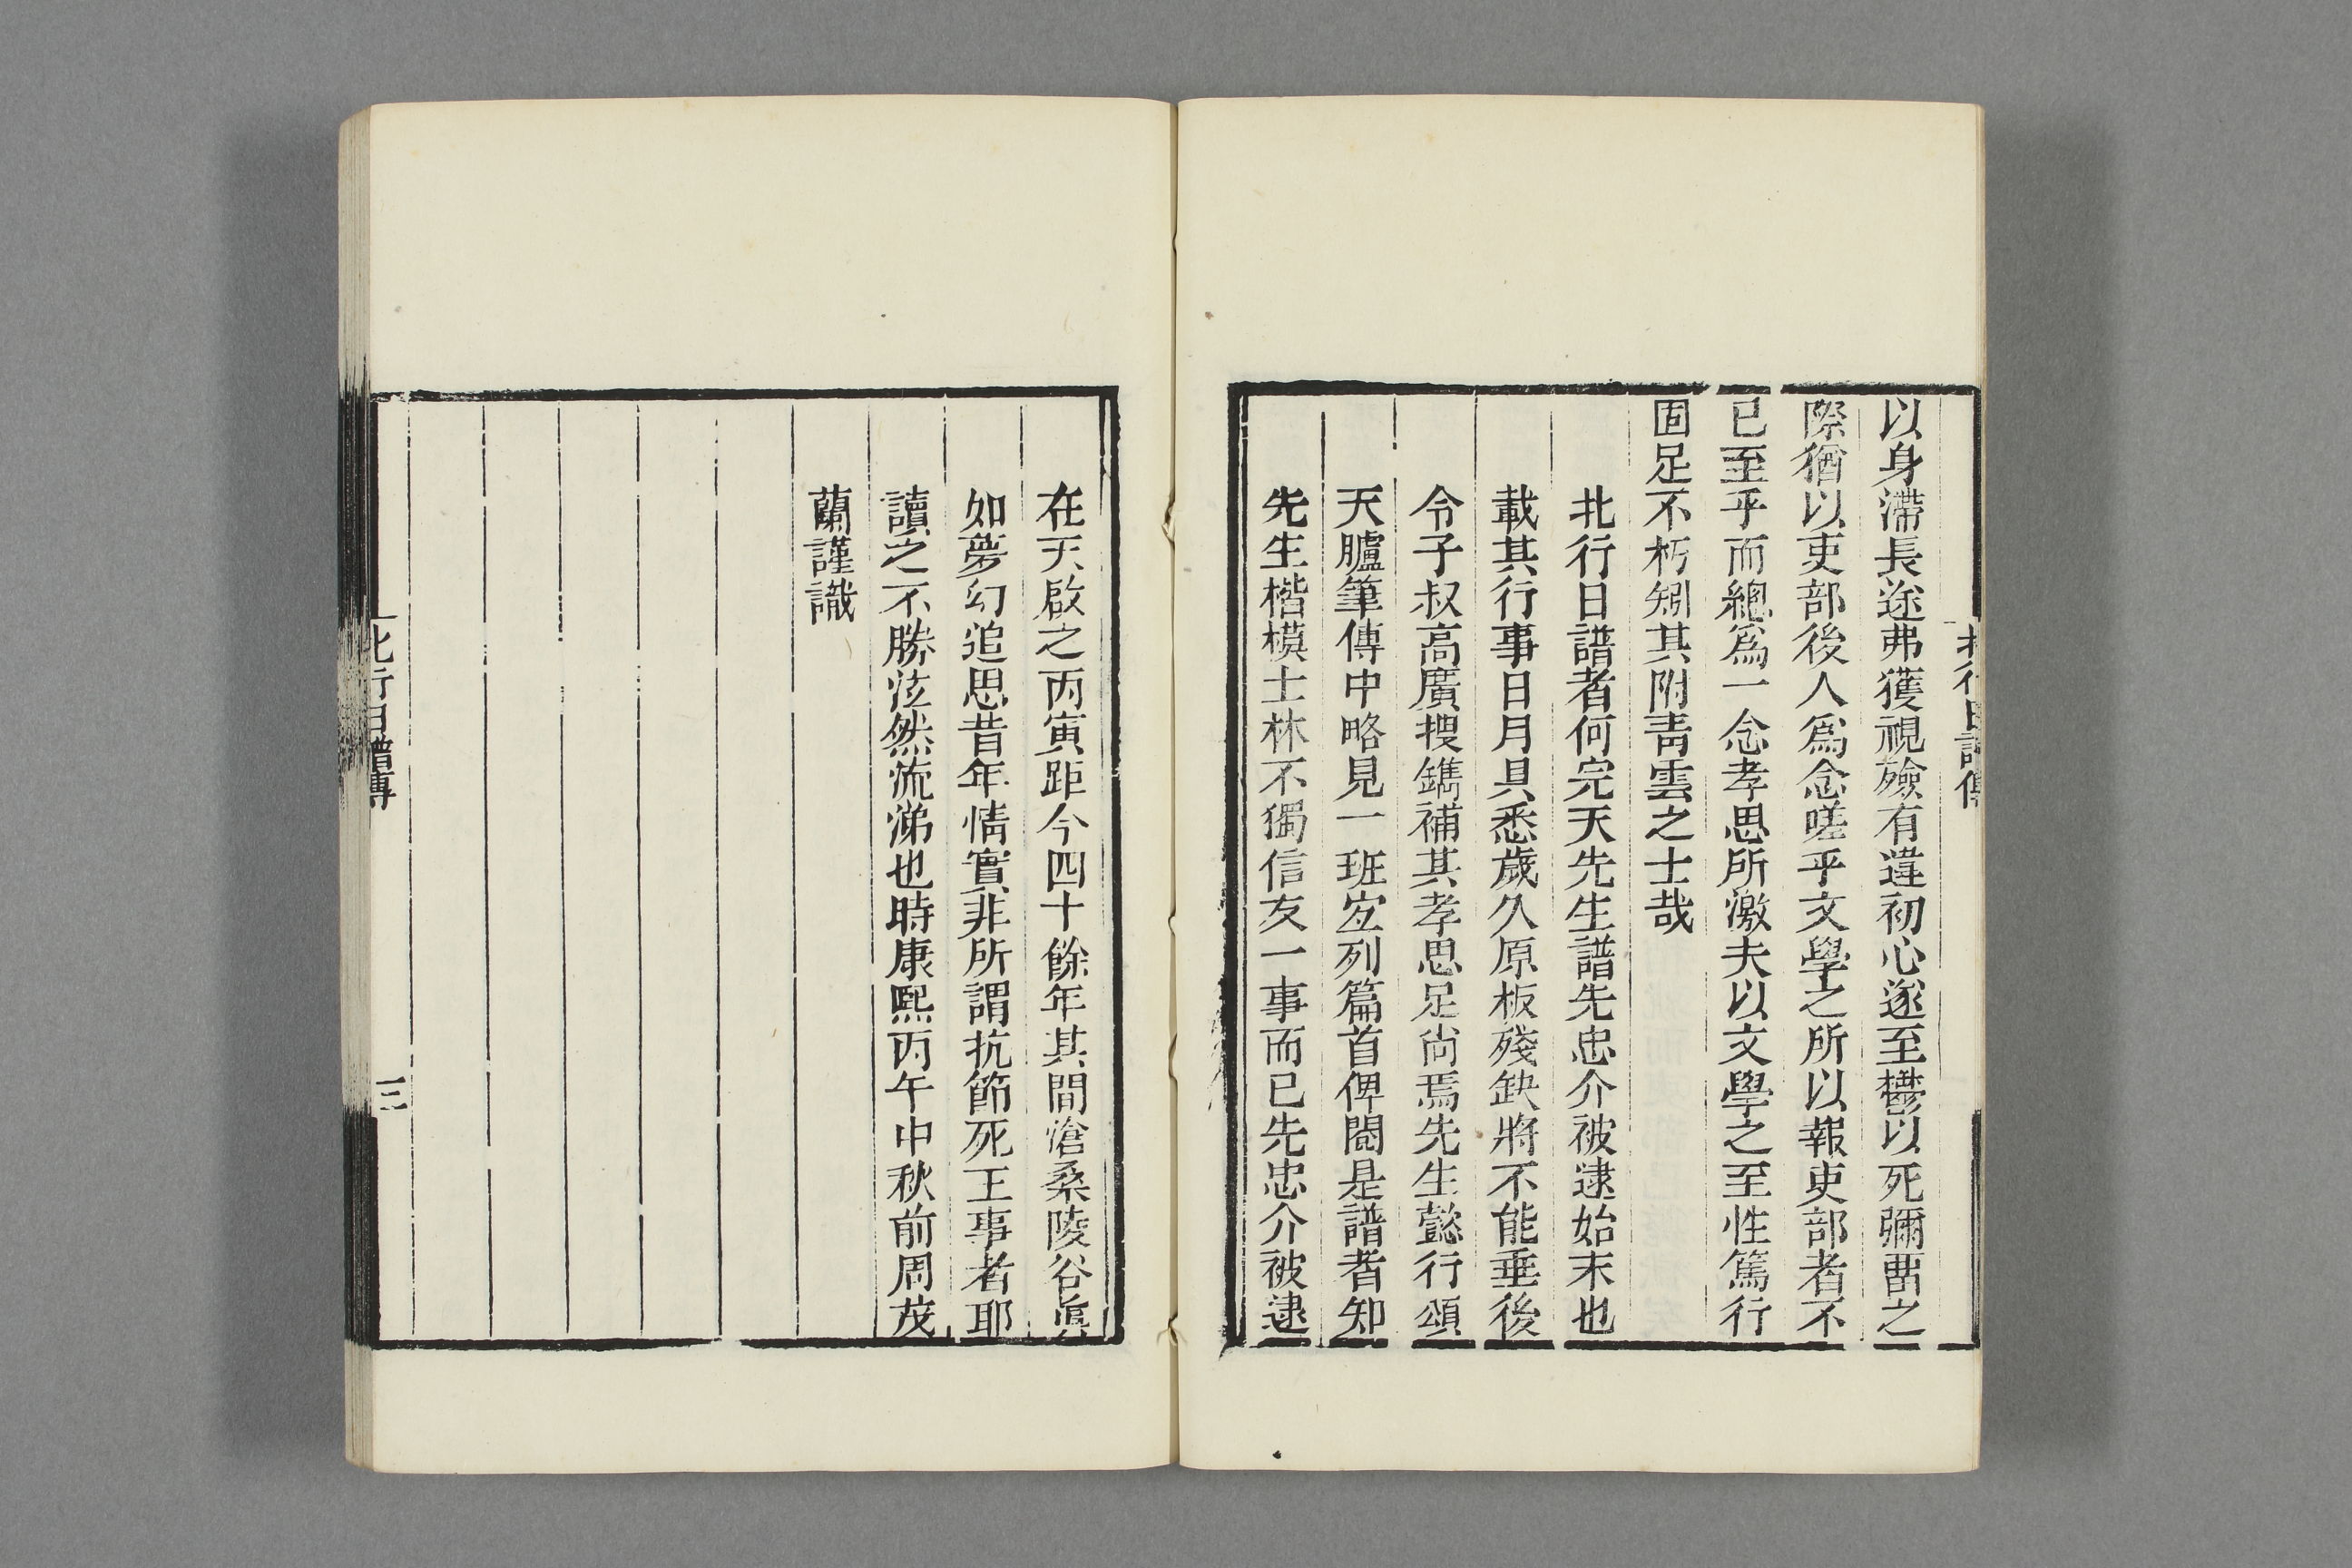 以身滯長途弗獲視殮有違初心遂至鬱以死彌畱之
際猶以吏部後人爲念嗟乎文學之所以報吏部者不
已至乎而總爲一念孝思所激夫以文學之至性篤行
固足不朽矧其附青雲之士哉
北行日譜者何完天先生譜先忠介被逮始末也
載其行事日月具悉歲久原板殘缺將不能垂後
令子叔高廣搜鐫補其孝思足尚焉先生懿行頌
天臚筆傳中略見一班宐列篇首俾閱是譜者知
先生楷模士林不獨信友一事而已先忠介被逮
在天啟之丙寅距今四十餘年其間滄桑陵谷眞
如夢幻追思昔年情實非所謂抗節死王事者耶
讀之不勝泫然流涕也時康熙丙午中秋前周茂
蘭謹識
北行日譜傳
三